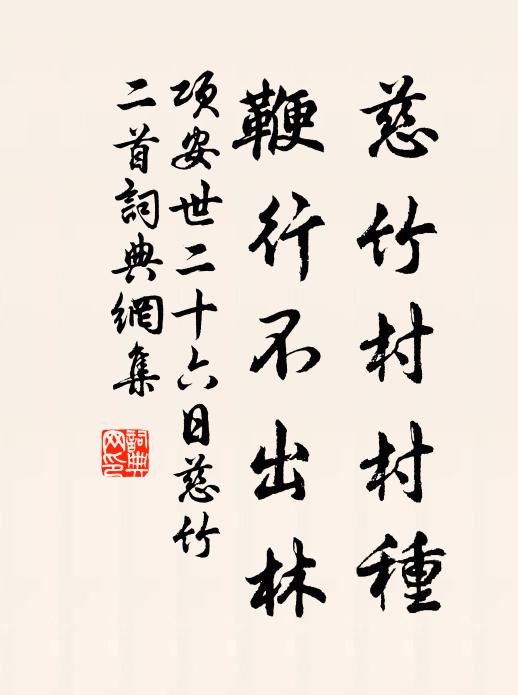 慈竹村村種
鞭行不出林
項安世二十六日慈竹
二首詞典網集
詞典
网印